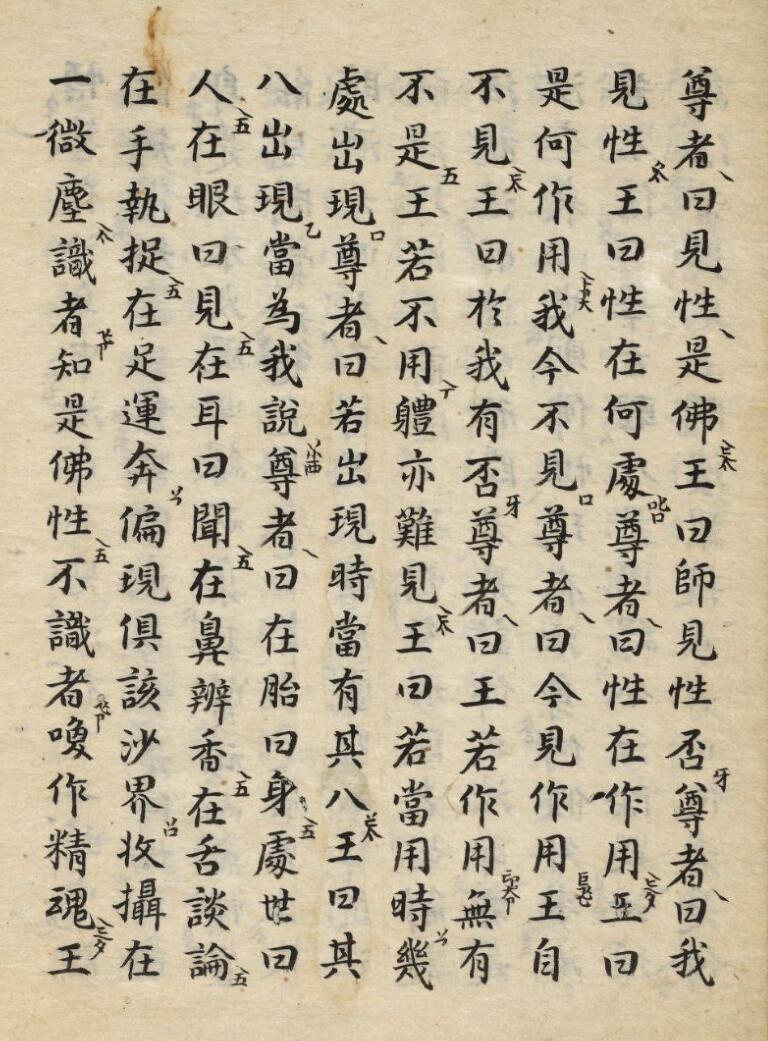 尊者曰見性是佛王曰師見性否尊者曰我
見性王曰性在何處尊者曰性在作用王曰
是何作用我今不見尊者曰今見作用王自
不見王曰於我有否尊者曰王若作用無有
不是王若不用軆亦難見王曰若當用時幾
處出現尊者曰若出現時當有其八王曰其
八出現當為我說尊者曰在胎曰身處世曰
人在眼曰見在耳曰聞在鼻辨香在舌談論
在手執捉在足運奔偏現俱該沙界收攝在
一微塵識者知是佛性不識者喚作精魂王